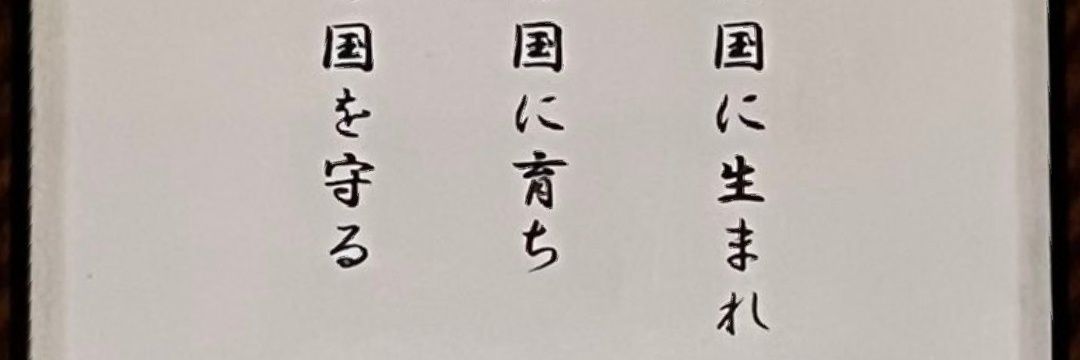 国に生まれ
国に育ち
国を守る